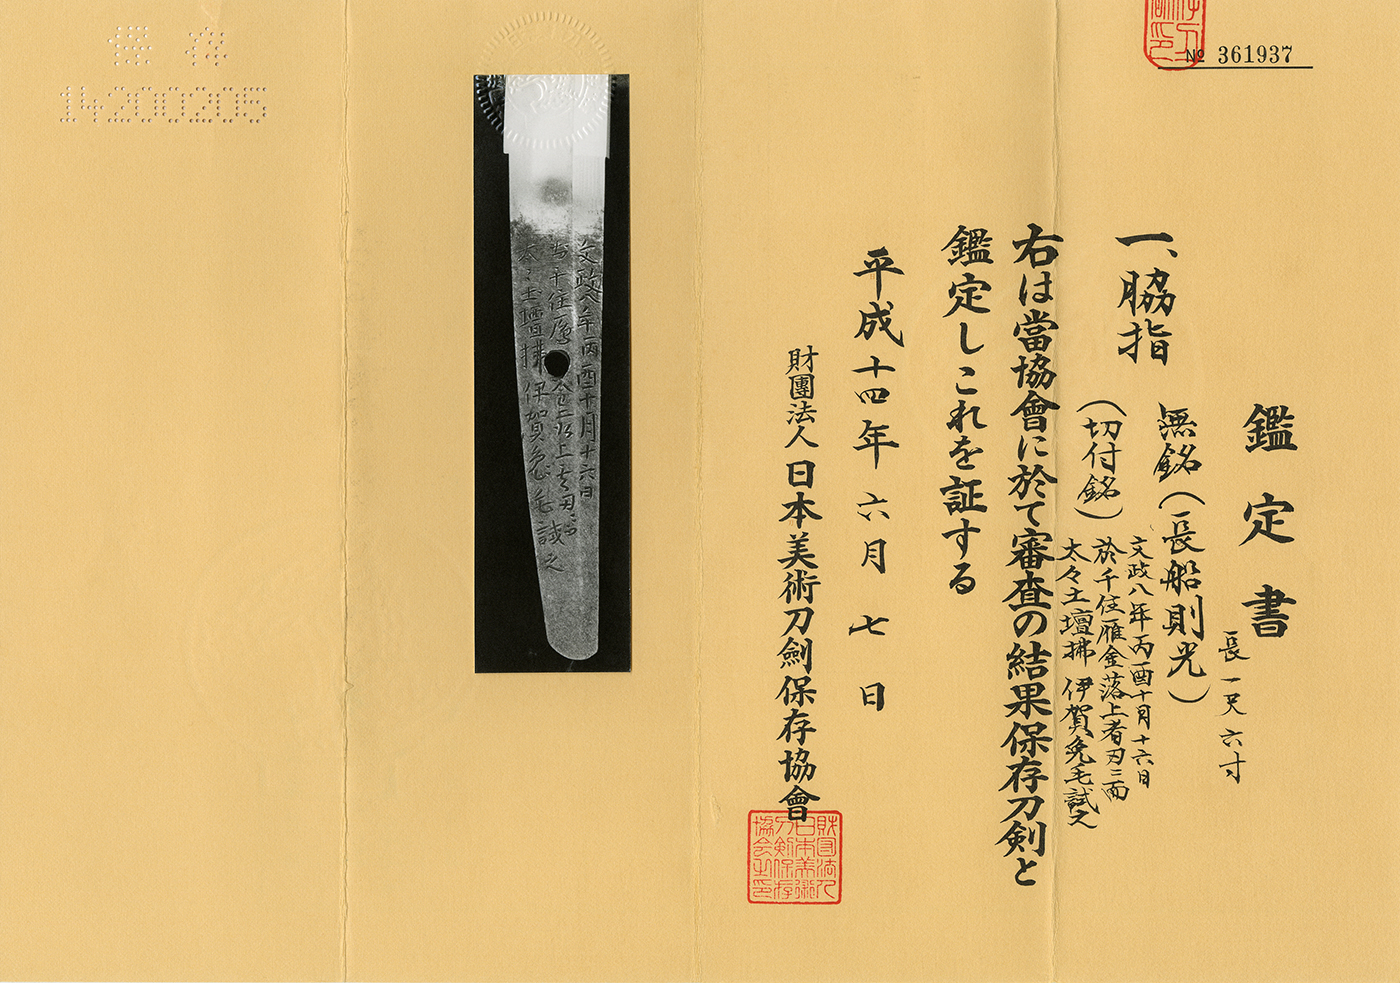 № 361937
鑑定書
一、脇指
長一尺六寸
無銘(長船則光)
(切付銘)
文政八年丙酉十月十六日
於千住雁金落上者刃三面
太々土壇拂 伊賀兔毛試之
右は當協會に於て審査の結果保存刀剣と
鑑定しこれを証する
平成十四年六月七日
財團法人日本美術刀劍保存協會
財団法人
日本美術
刀剣保存
協会之印
文政八年丙酉十月十六日
保存
14200205